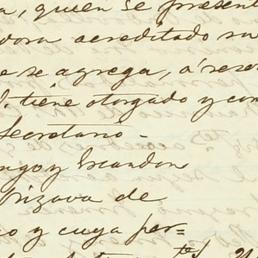 a, quien se present
dora acreditado su
e se agrega, á reser
tiene otorgado y con
Secretario.
ngo y Escandon
rizava de
o y cuya per=